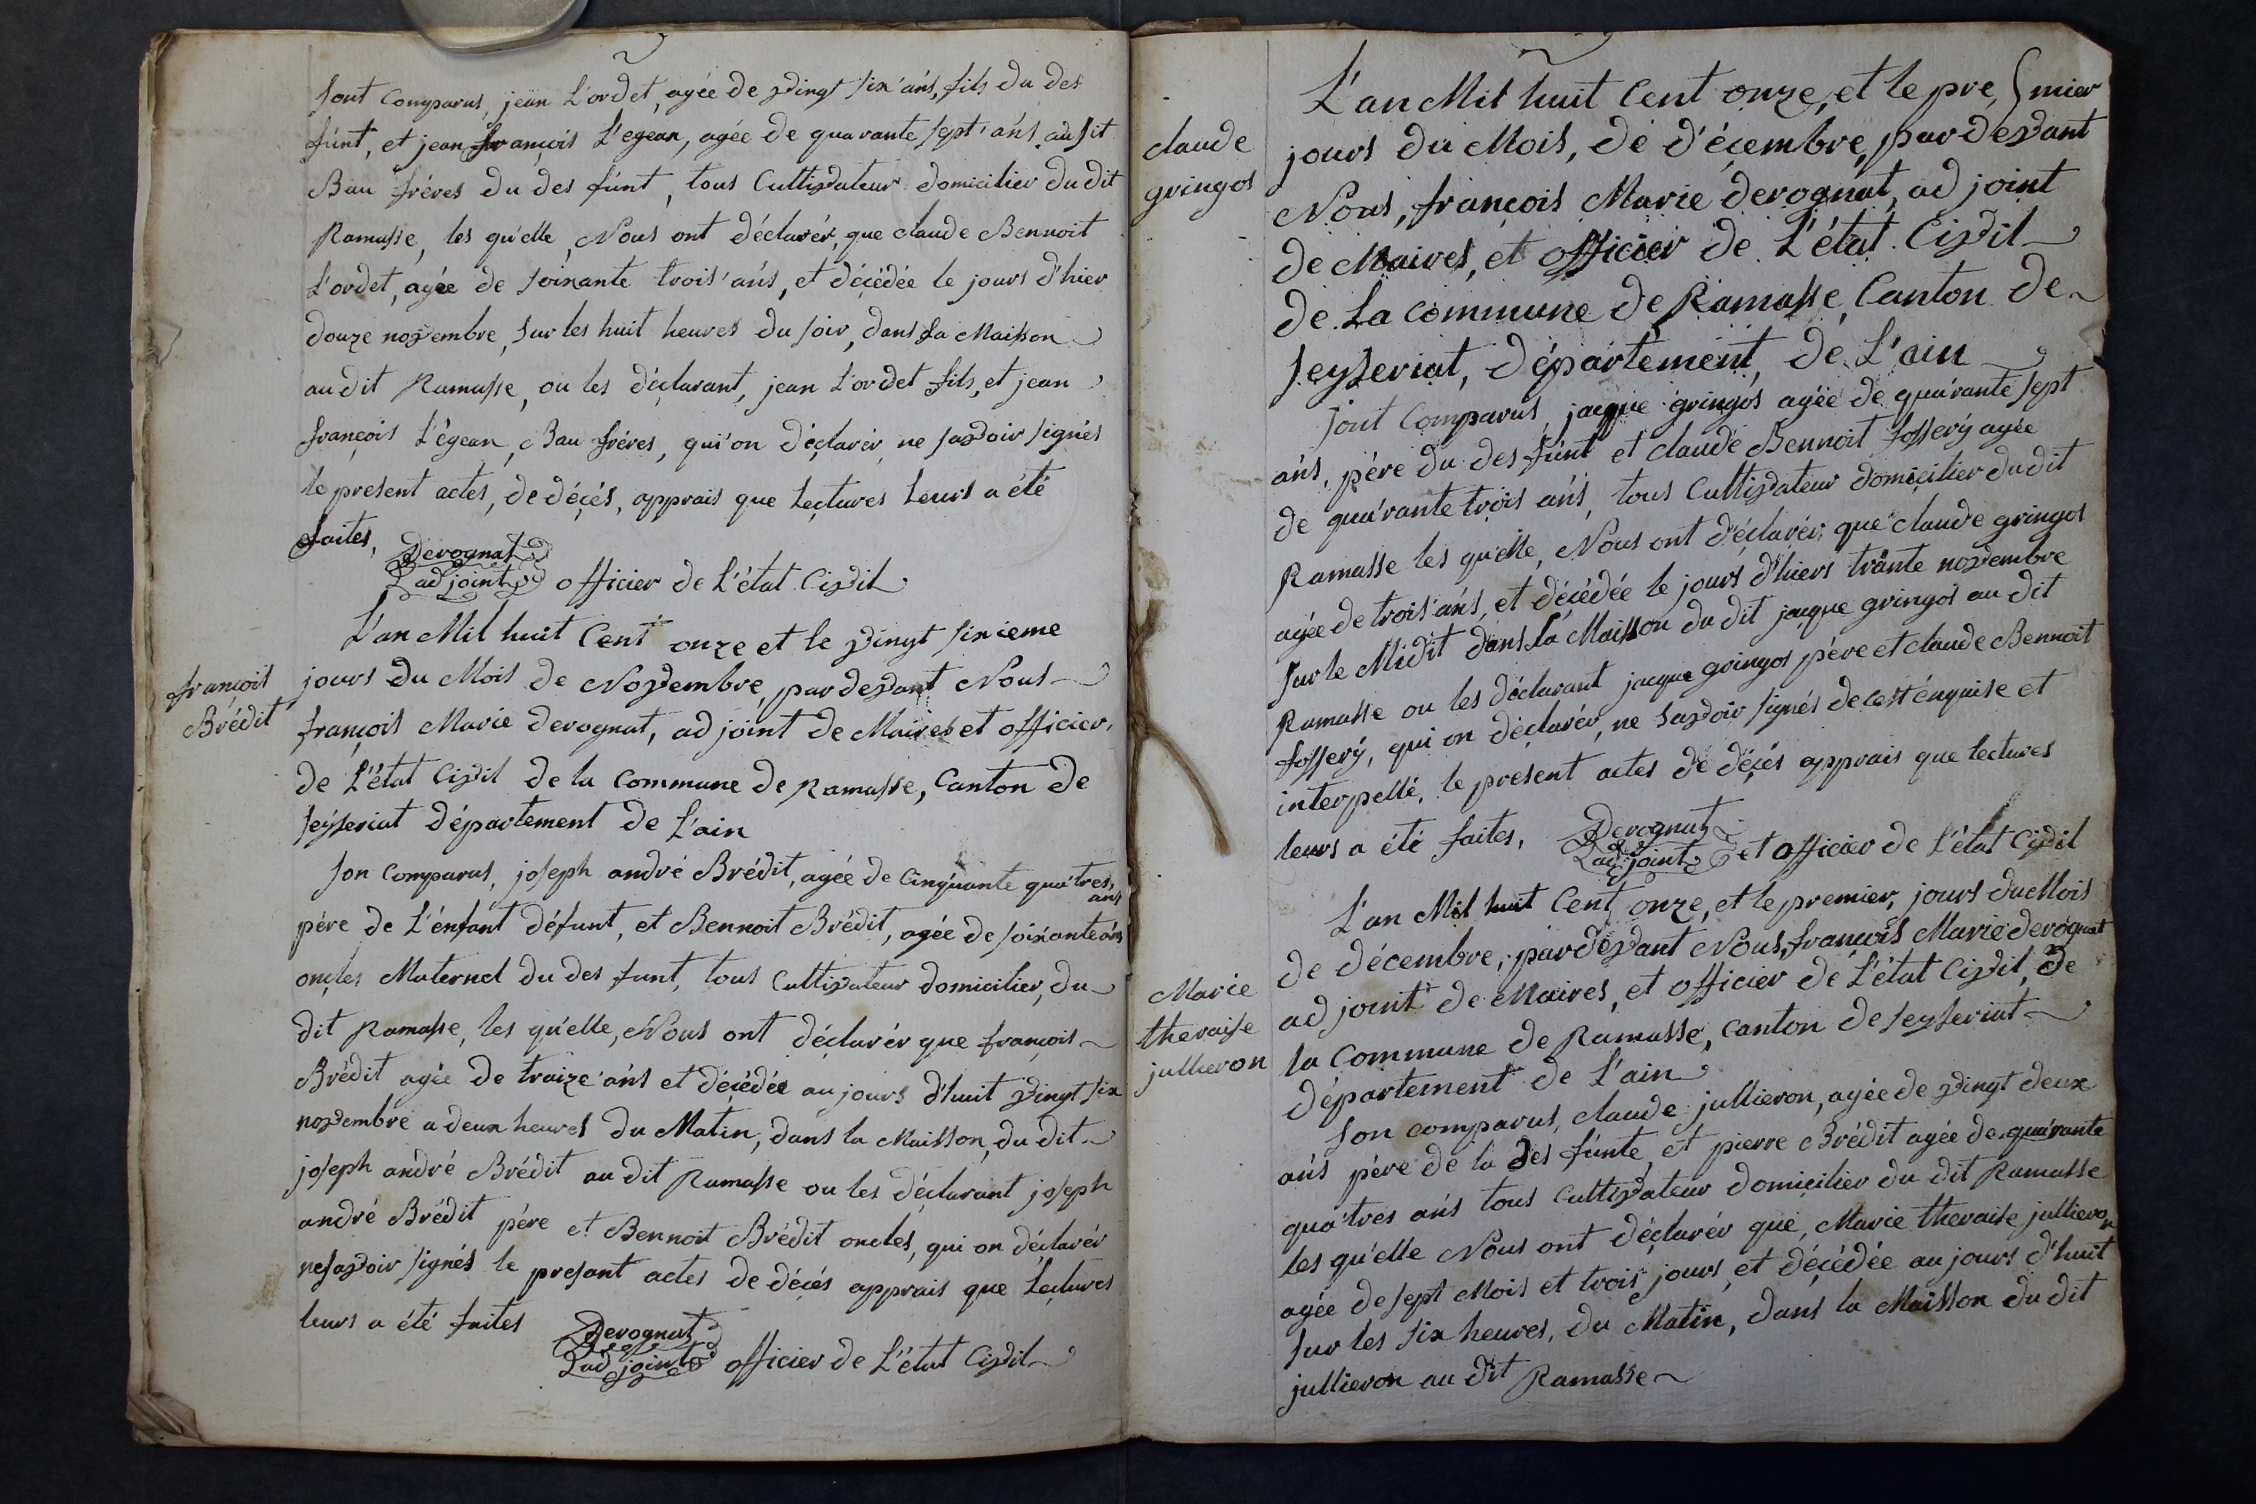 sont Comparus, jean L'ordet, agée de vingt six ans, fils du des
fúnt, et jean françois L'egean, agée de quarante sept ans au sit
Bau fréres du des fúnt, tous Cultivateur domicilier du dit
Ramasse, les qu'elle, Nous ont déclarér, que claude Bennoit
L'ordet, agée de soixante trois ans, et décédée le jours d'hier
douze novembre, sur les huit heures du soir, dans sa Maisson
au dit Ramasse, ou les déclarant, jean L'ordet fils, et jean
françois L'égean, Bau fréres, qui'on déclarér, ne savoir signés
le present actes, de décés, apprais que Lectures Leurs a été
faites,
Derognat
L'ad joint officier de L'état Civil
L'an Mil huit Cent onze et le vingt sixieme
françois
Brédit
jours du Mois de Novembre, par devant Nous
françois Marie derognat, ad joint de Maires et officier,
de L'état Civil de la Commune de Ramasse, Canton de
seyseriat département de L'ain
son Comparus, joseph andré Brédit, agée de Cinquante quatres,
ans
pére de L'énfant défunt, et Bennoit Brédit, agée de soixante ans
oncles Maternel du des funt, tous Cultivateur domicilier, du
dit Ramasse, les qu'elle, Nous ont déclarér que françois
Brédit agée de traize ans et décédée au jours d'huit vingt six
novembre a deux heures du Matin, dans la Maisson, du dit
joseph andré Brédit au dit Ramasse ou les déclarant joseph
andré Brédit pére et Bennoit Brédit oncles, qui on déclarér
ne savoir signés le presant actes de décés apprais que Lectures
leurs a été faites
Derognat
L'ad joint officier de L'état Civil
claude
gringos
L'an Mil huit Cent onze, et le pre mier
jours du Mois, de décembre, par devant
Nous, françois Marie derognat, ad joint
de Maires, et officier de L'état Civil
de La Commune de Ramasse, Canton de
seyseriat, département, de L'ain
sont Comparus, jacque gringos agée de quarante sept
ans, pére du des fúnt et claude Bennoit fosserÿ agée
de quarante trois ans, tous Cultivateur domicilier du dit
Ramasse les qu'elle, Nous ont déclarér, que claude gringos
agée de trois ans, et décédée le jours d'hiers trante novembre
sur le Midit dans la Maisson du dit jacque gringos au dit
Ramasse ou les déclarant jacque gringos pére et claude Bennoit
fosserÿ, qui on déclarér, ne savoir signés de cest énquise et
interpellé, le present actes de décés apprais que lectures
leurs a été faites,
Derognat
L'ad joint et officier de L'état Civil
L'an Mil huit Cent onze, et le premier, jours du Mois
de décembre, par devant Nous, françois Marie derognat
Marie
theraise
jullieron
ad joint de Maires, et officier de L'état Civil, de
la Commune de Ramasse, Canton de seyseriat
département de L'ain
son comparus, claude jullieron, agée de vingt deux
ans pére de la des fúnte, et pierre Brédit agée de quarante
quatres ans tous Cultivateur domicilier du dit Ramasse
les qu'elle Nous ont déclarér que, Marie theraise jullieron
agée de sept Mois et trois jours, et décédée au jours d'huit
sur les six heures, du Matin, dans la Maisson du dit
jullieron au dit Ramasse